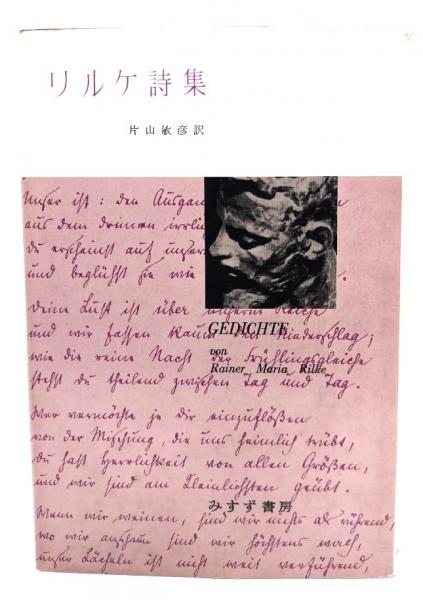 リルケ詩集
片山敏彦訳
Unser ist: den Ausgan
aus dem drinnen irrli
du erscheinst auf unser
und beglückst sie wie
Deine Lust ist über unserm Reiche
und wir fassen kaum den Niederschlag;
wie die reine Nacht der Frühlingsgleiche
stehst du theilend zwischen Tag und Tag.
Wer vermöchte je dir einzuflößen
von der Mischung, die uns heimlich trübt,
du hast Herrlichkeit von allen Größen,
und wir sind am Kleinlichsten geübt.
Wenn wir weinen, sind wir nichts als rührend,
wo wir anschaun sind wir höchstens wach,
unser Lächeln ist nicht weit verführend,
GEDICHTE
von
Rainer Maria Rilke
みすず書房